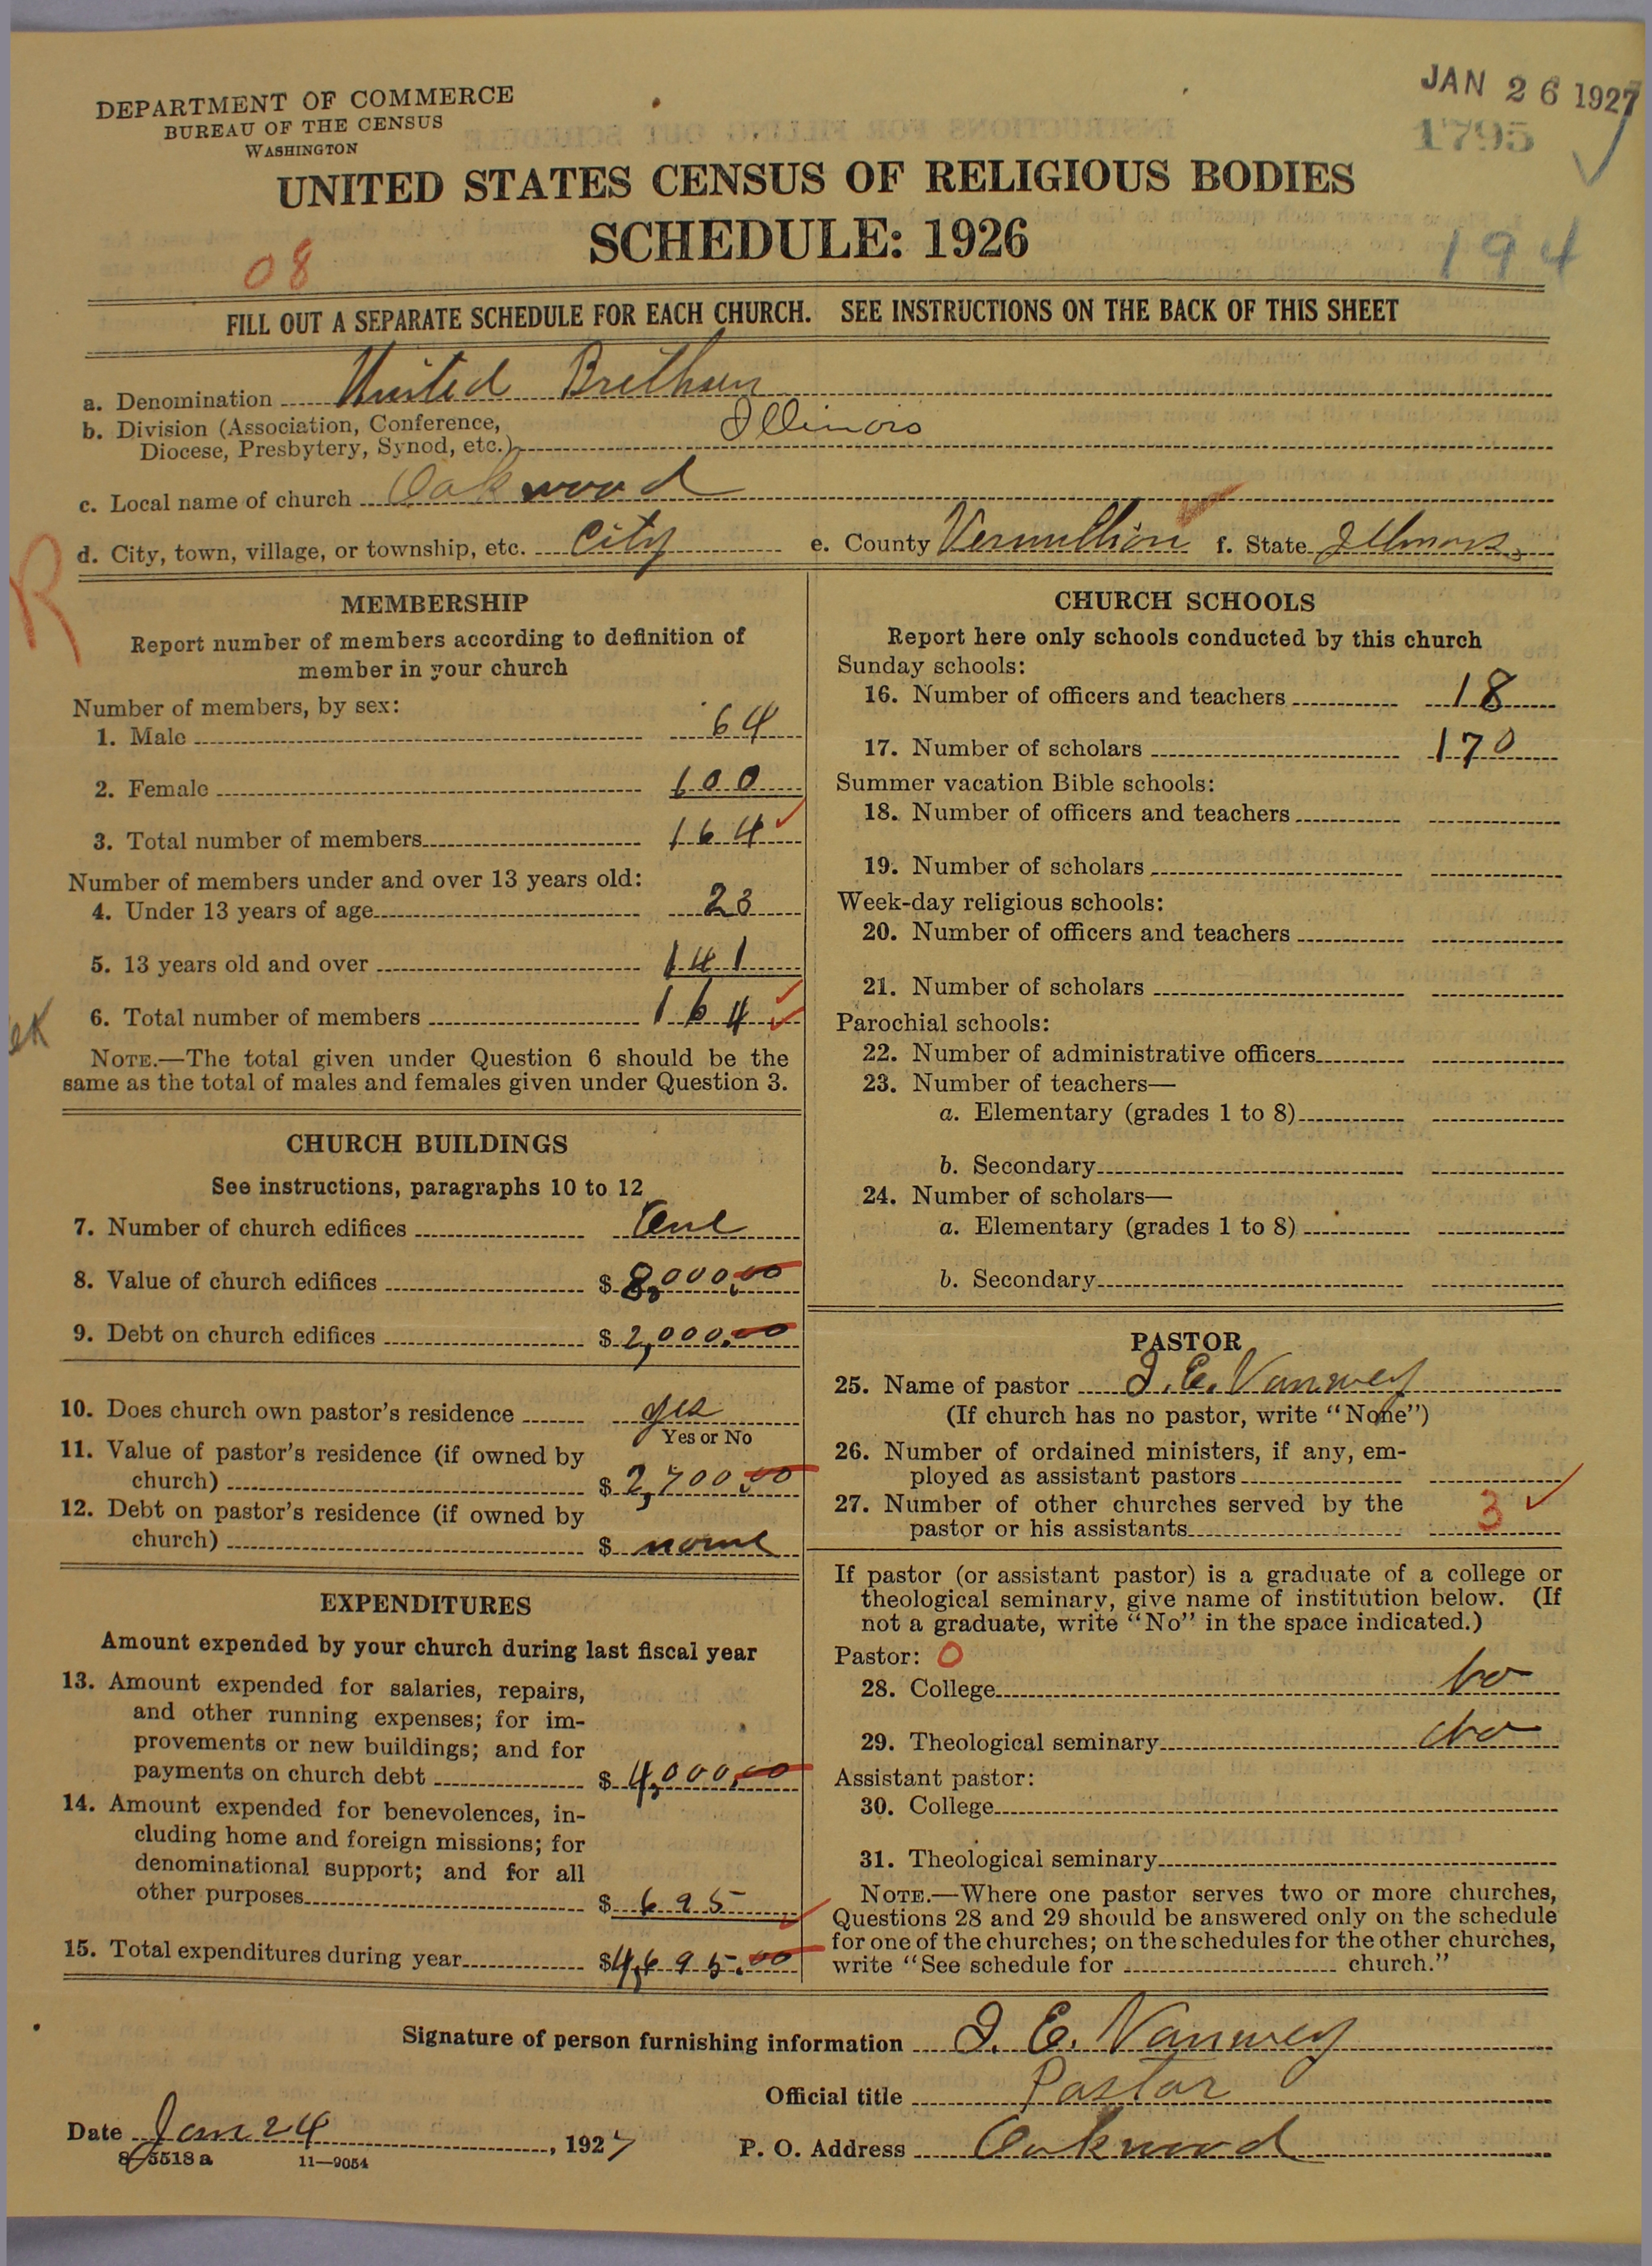 DEPARTMENT OF COMMERCE
BUREAU OF THE CENSUS
WASHINGTON
JAN 26 1927
1795
UNITED STATES CENSUS OF RELIGIOUS BODIES
SCHEDULE: 1926
08
194
FILL OUT A SEPARATE SCHEDULE FOR EACH CHURCH. SEE INSTRUCTIONS ON THE BACK OF THIS SHEET
a. Denomination United Brethren
b. Division (Association, Conference,
Diocese, Presbytery, Synod, etc.) Illinois
c. Local name of church Oakwood
d. City, town, village, or township, etc. City e. County Vermillion f. State Illinois
R
MEMBERSHIP
Report number of members according to definition of
member in your church
Number of members, by sex:
1. Male 64
2. Female 100
3. Total number of members 164
Number of members under and over 13 years old:
4. Under 13 years of age 23
5. 13 years old and over 141
6. Total number of members 164
NOTE.—The total given under Question 6 should be the
same as the total of males and females given under Question 3.
CHURCH BUILDINGS
See instructions, paragraphs 10 to 12
7. Number of church edifices One
8. Value of church edifices $ 8,000.00
9. Debt on church edifices $ 2,000.00
10. Does church own pastor's residence yes
Yes or No
11. Value of pastor's residence (if owned by
church) $ 2,700.00
12. Debt on pastor's residence (if owned by
church) $ none
EXPENDITURES
Amount expended by your church during last fiscal year
13. Amount expended for salaries, repairs,
and other running expenses; for im-
provements or new buildings; and for
payments on church debt $ 4,000.00
14. Amount expended for benevolences, in-
cluding home and foreign missions; for
denominational support; and for all
other purposes $ 695
15. Total expenditures during year $ 4,695.00
CHURCH SCHOOLS
Report here only schools conducted by this church
Sunday schools:
16. Number of officers and teachers 18
17. Number of scholars 170
Summer vacation Bible schools:
18. Number of officers and teachers
19. Number of scholars
Week-day religious schools:
20. Number of officers and teachers
21. Number of scholars
Parochial schools:
22. Number of administrative officers
23. Number of teachers—
a. Elementary (grades 1 to 8)
b. Secondary
24. Number of scholars—
a. Elementary (grades 1 to 8)
b. Secondary
PASTOR
25. Name of pastor I. E. Vanwey
(If church has no pastor, write "None")
26. Number of ordained ministers, if any, em-
ployed as assistant pastors
27. Number of other churches served by the
pastor or his assistants 3
If pastor (or assistant pastor) is a graduate of a college or
theological seminary, give name of institution below. (If
not a graduate, write "No" in the space indicated.)
Pastor: 0
28. College No
29. Theological seminary No
Assistant pastor:
30. College
31. Theological seminary
NOTE.—Where one pastor serves two or more churches,
Questions 28 and 29 should be answered only on the schedule
for one of the churches; on the schedules for the other churches,
write "See schedule for church."
Signature of person furnishing information I. E. Vanwey
Official title Pastor
Date Jan 24, 1927
P. O. Address Oakwood
8-5518 a 11—9054